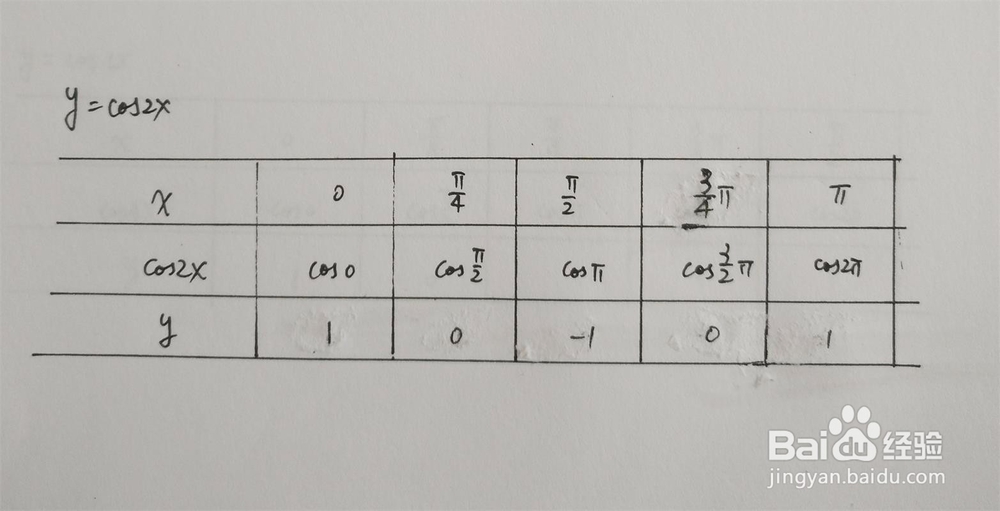 y=cos2x
x 0 π/4 π/2 3/4π π
cos2x cos0 cosπ/2 cosπ cos3/2π cos2π
y 1 0 -1 0 1
Baidu经验
jingyan.baidu.com